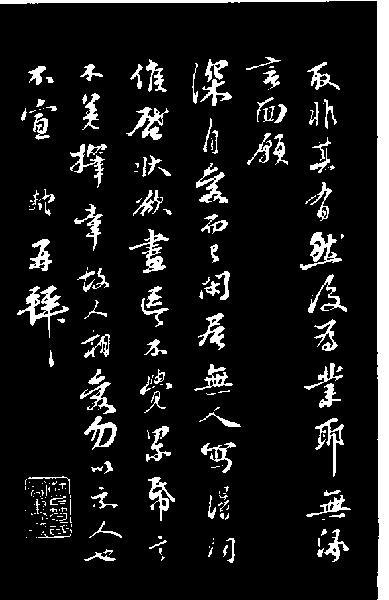 取非其有然後為業耶無緣
言面願
深自愛而已閑居無人寫得問
候啓狀欲盡區區不覺累幅言
不擇幸故人相愛勿以示人也
不宣 軾再拜